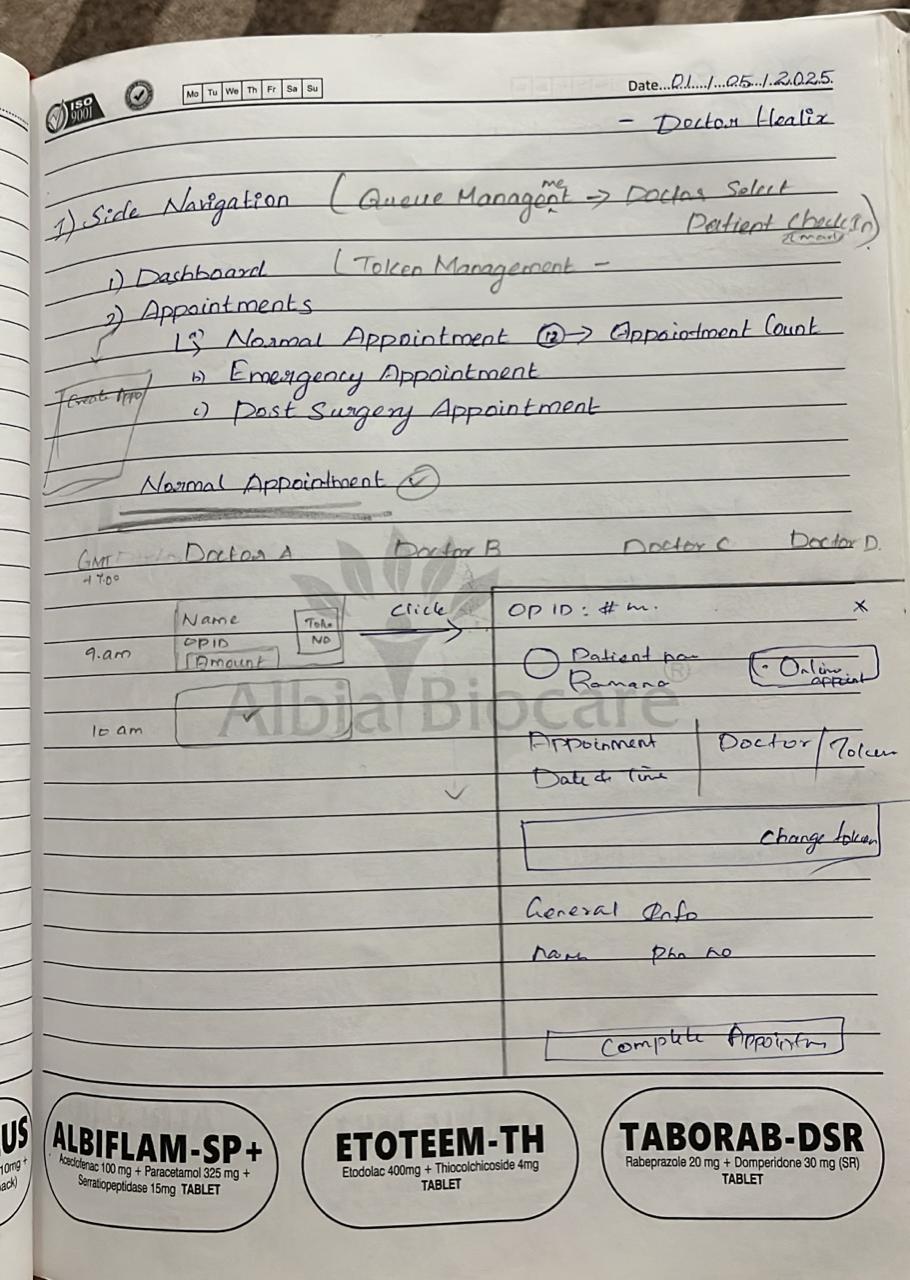 ISO
9001
Mo Tu We Th Fr Sa Su
Date...01..../...05.../.2025.
- Doctor Healix
1) Side Navigation ( Queue Management → Doctor Select
Patient Check In)
1) Dashboard ( Token Management -
2) Appointments
a) Normal Appointment (12) → Appointment Count
b) Emergency Appointment
c) Post Surgery Appointment
Create Appo
Normal Appointment ✓
GMT Doctor A Doctor B Doctor C Doctor D.
Name
OPID
Amount
NO
Click
9.am
10 am
OP ID : # m. x
Patient
Ramana
Online
appoint
Appoinment
Date & Time
Doctor / Token
Change token
General Info
Pho no
Complete Appointm
Albia Biocare®
US
10mg +
ack)
ALBIFLAM-SP+
Aceclofenac 100 mg + Paracetamol 325 mg +
Serratiopeptidase 15mg TABLET
ETOTEEM-TH
Etodolac 400mg + Thiocolchicoside 4mg
TABLET
TABORAB-DSR
Rabeprazole 20 mg + Domperidone 30 mg (SR)
TABLET